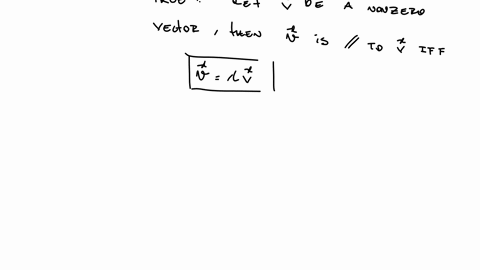 LET V BE A NONZERO
VECTOR, THEN IS // TO V IFF
= λ V